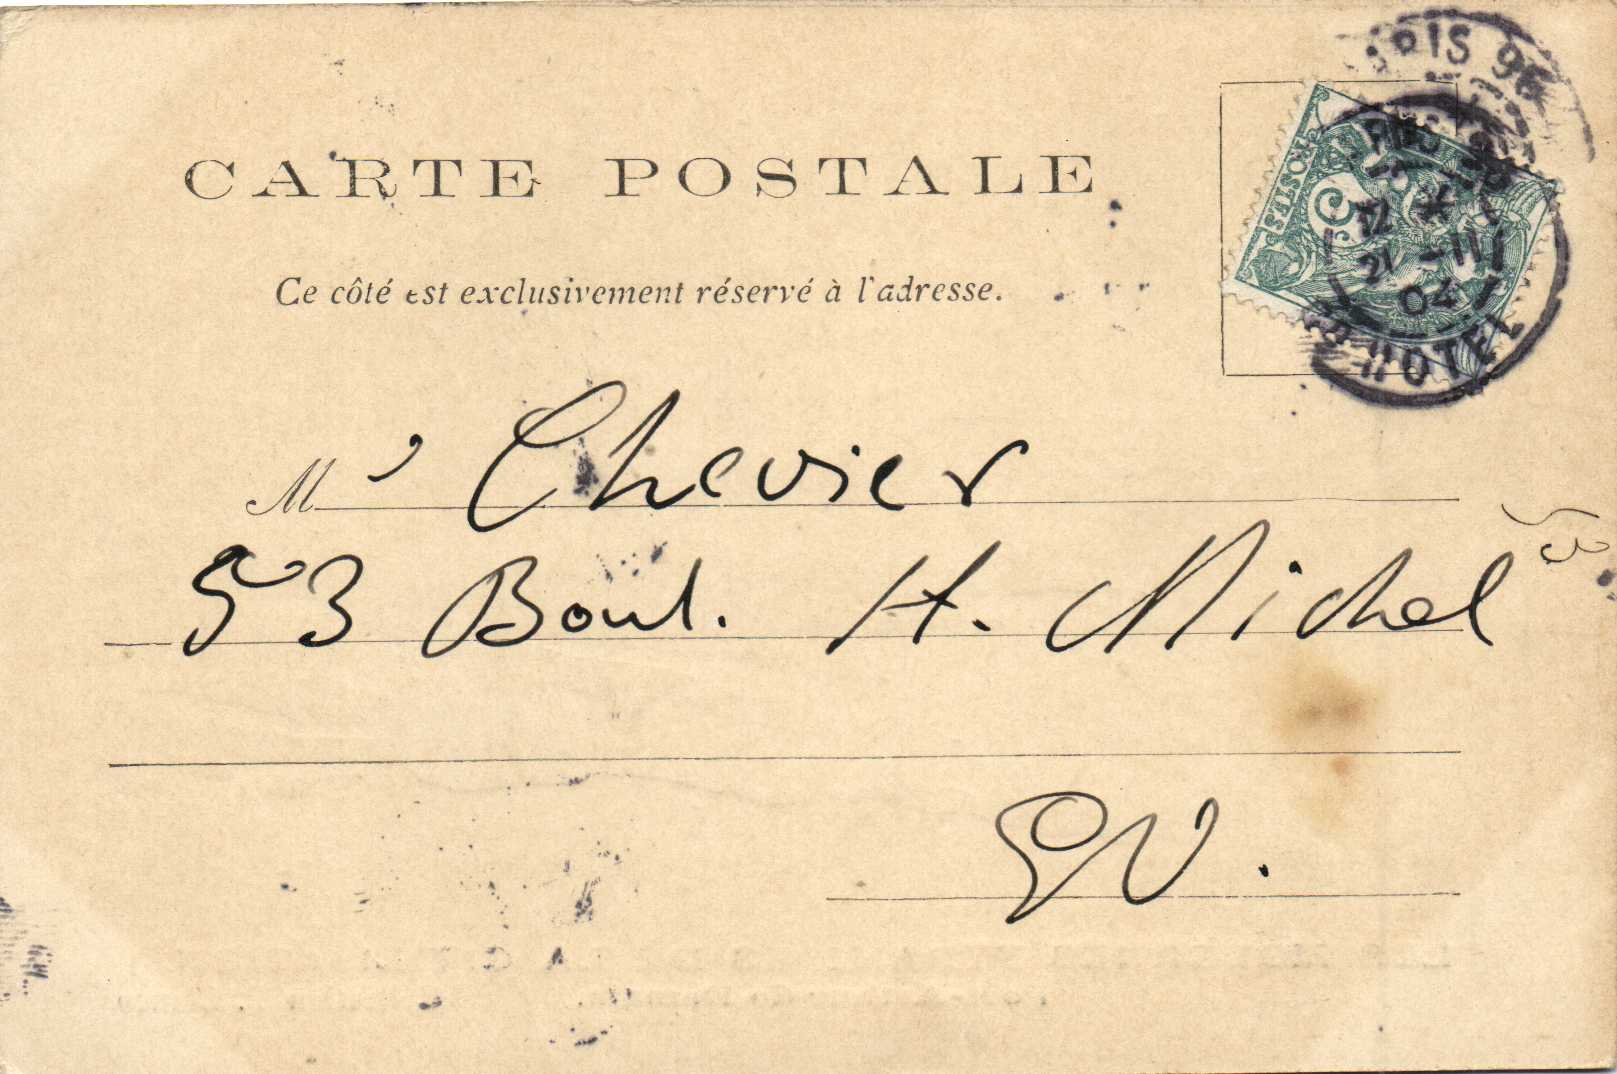 PARIS 96
CARTE POSTALE
POSTES
5
12
21 - 11
04
HOTEL
Ce côté est exclusivement réservé à l'adresse.
M r Chevier
53 Boul. St. Michel
EV.